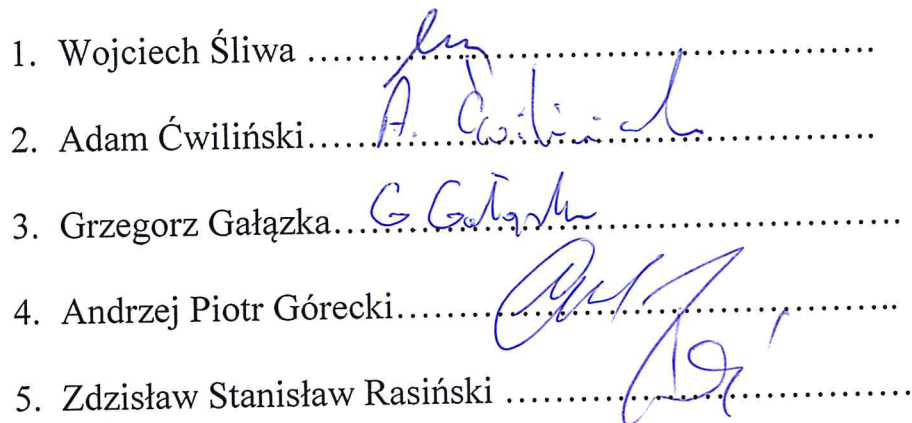 1. Wojciech Śliwa ................................................
2. Adam Ćwiliński...... A. Ćwiliński ................................
3. Grzegorz Gałązka...... G Gałązka ................................
4. Andrzej Piotr Górecki..........................................
5. Zdzisław Stanisław Rasiński ...................................